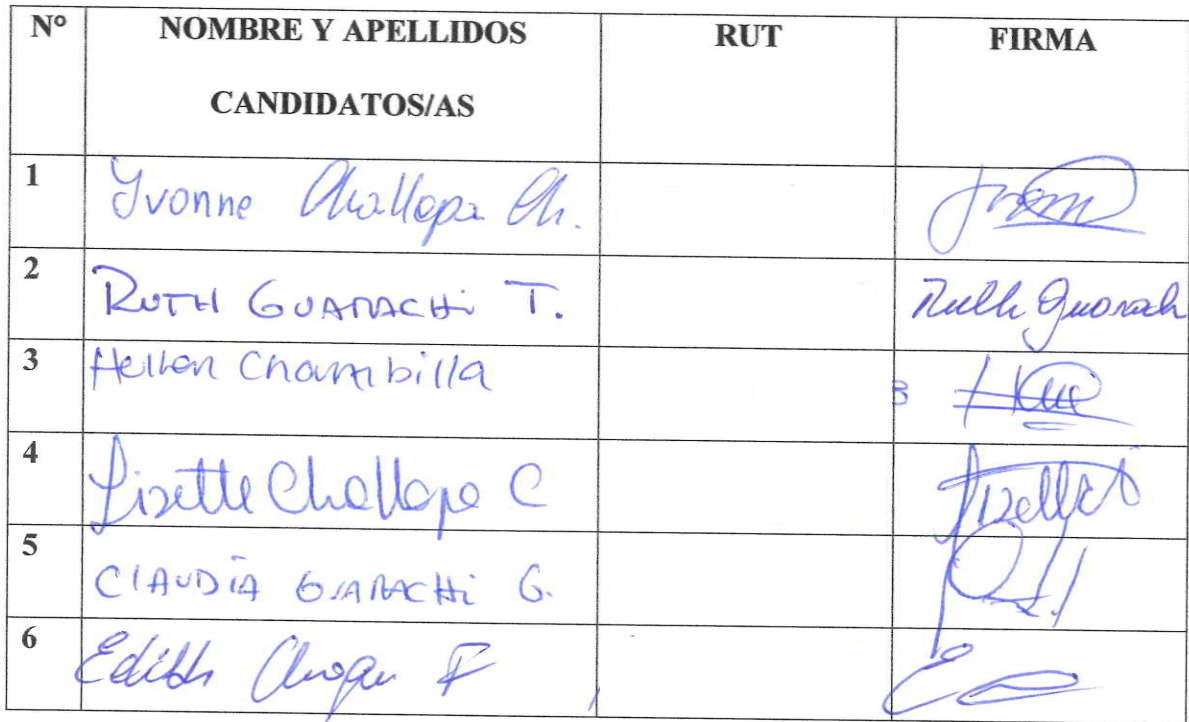 N° NOMBRE Y APELLIDOS CANDIDATOS/AS RUT FIRMA
1 Yvonne Challapa Ch.
2 RUTH GUARACHi T. Ruth Guarach
3 Hellen Chambilla
4 Lisette Challapa C
5 CLAUDIA GUARACHi G.
6 Edith